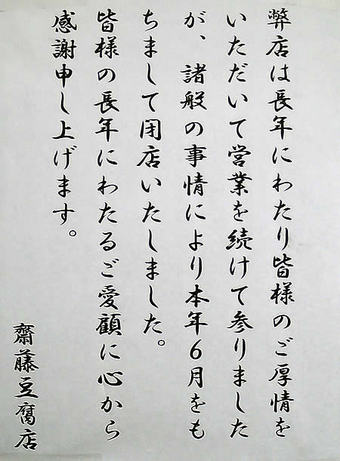 弊店は長年にわたり皆様のご厚情を
いただいて営業を続けて参りました
が、諸般の事情により本年6月をも
ちまして閉店いたしました。
皆様の長年にわたるご愛顧に心から
感謝申し上げます。
齋藤豆腐店